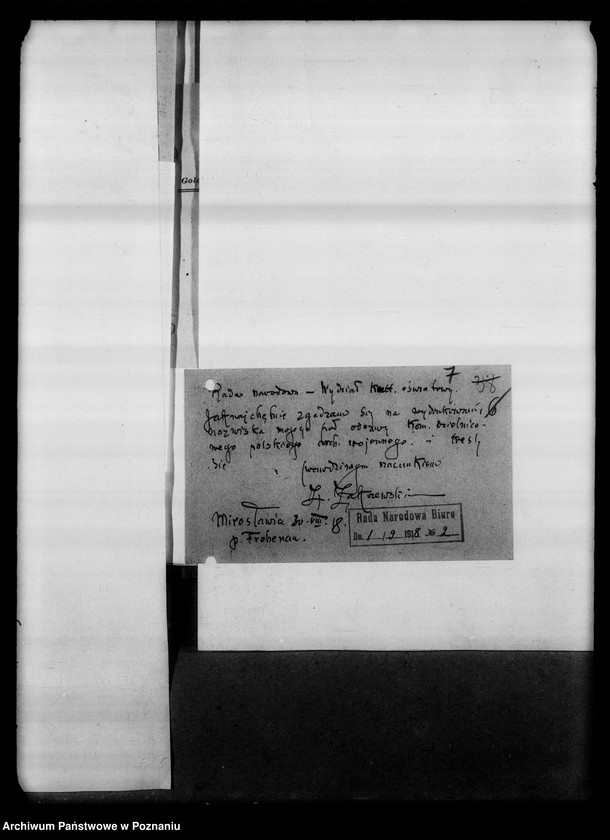 Gole
7
38
Rada Narodowa – Wydział Kult. oświatowy.
Jaknajchętniej zgadzam się na wydrukowanie
nazwiska mojego pod odezwy Kom. dzielnico-
wego polskiego arch. wojennego. i kreślę
się
prawdziwym szacunkiem
Mirosławia 30. VIII. 18.
p. Frohenau.
Rada Narodowa Biuro
Dn. 1/9 1918 № 2
Archiwum Państwowe w Poznaniu